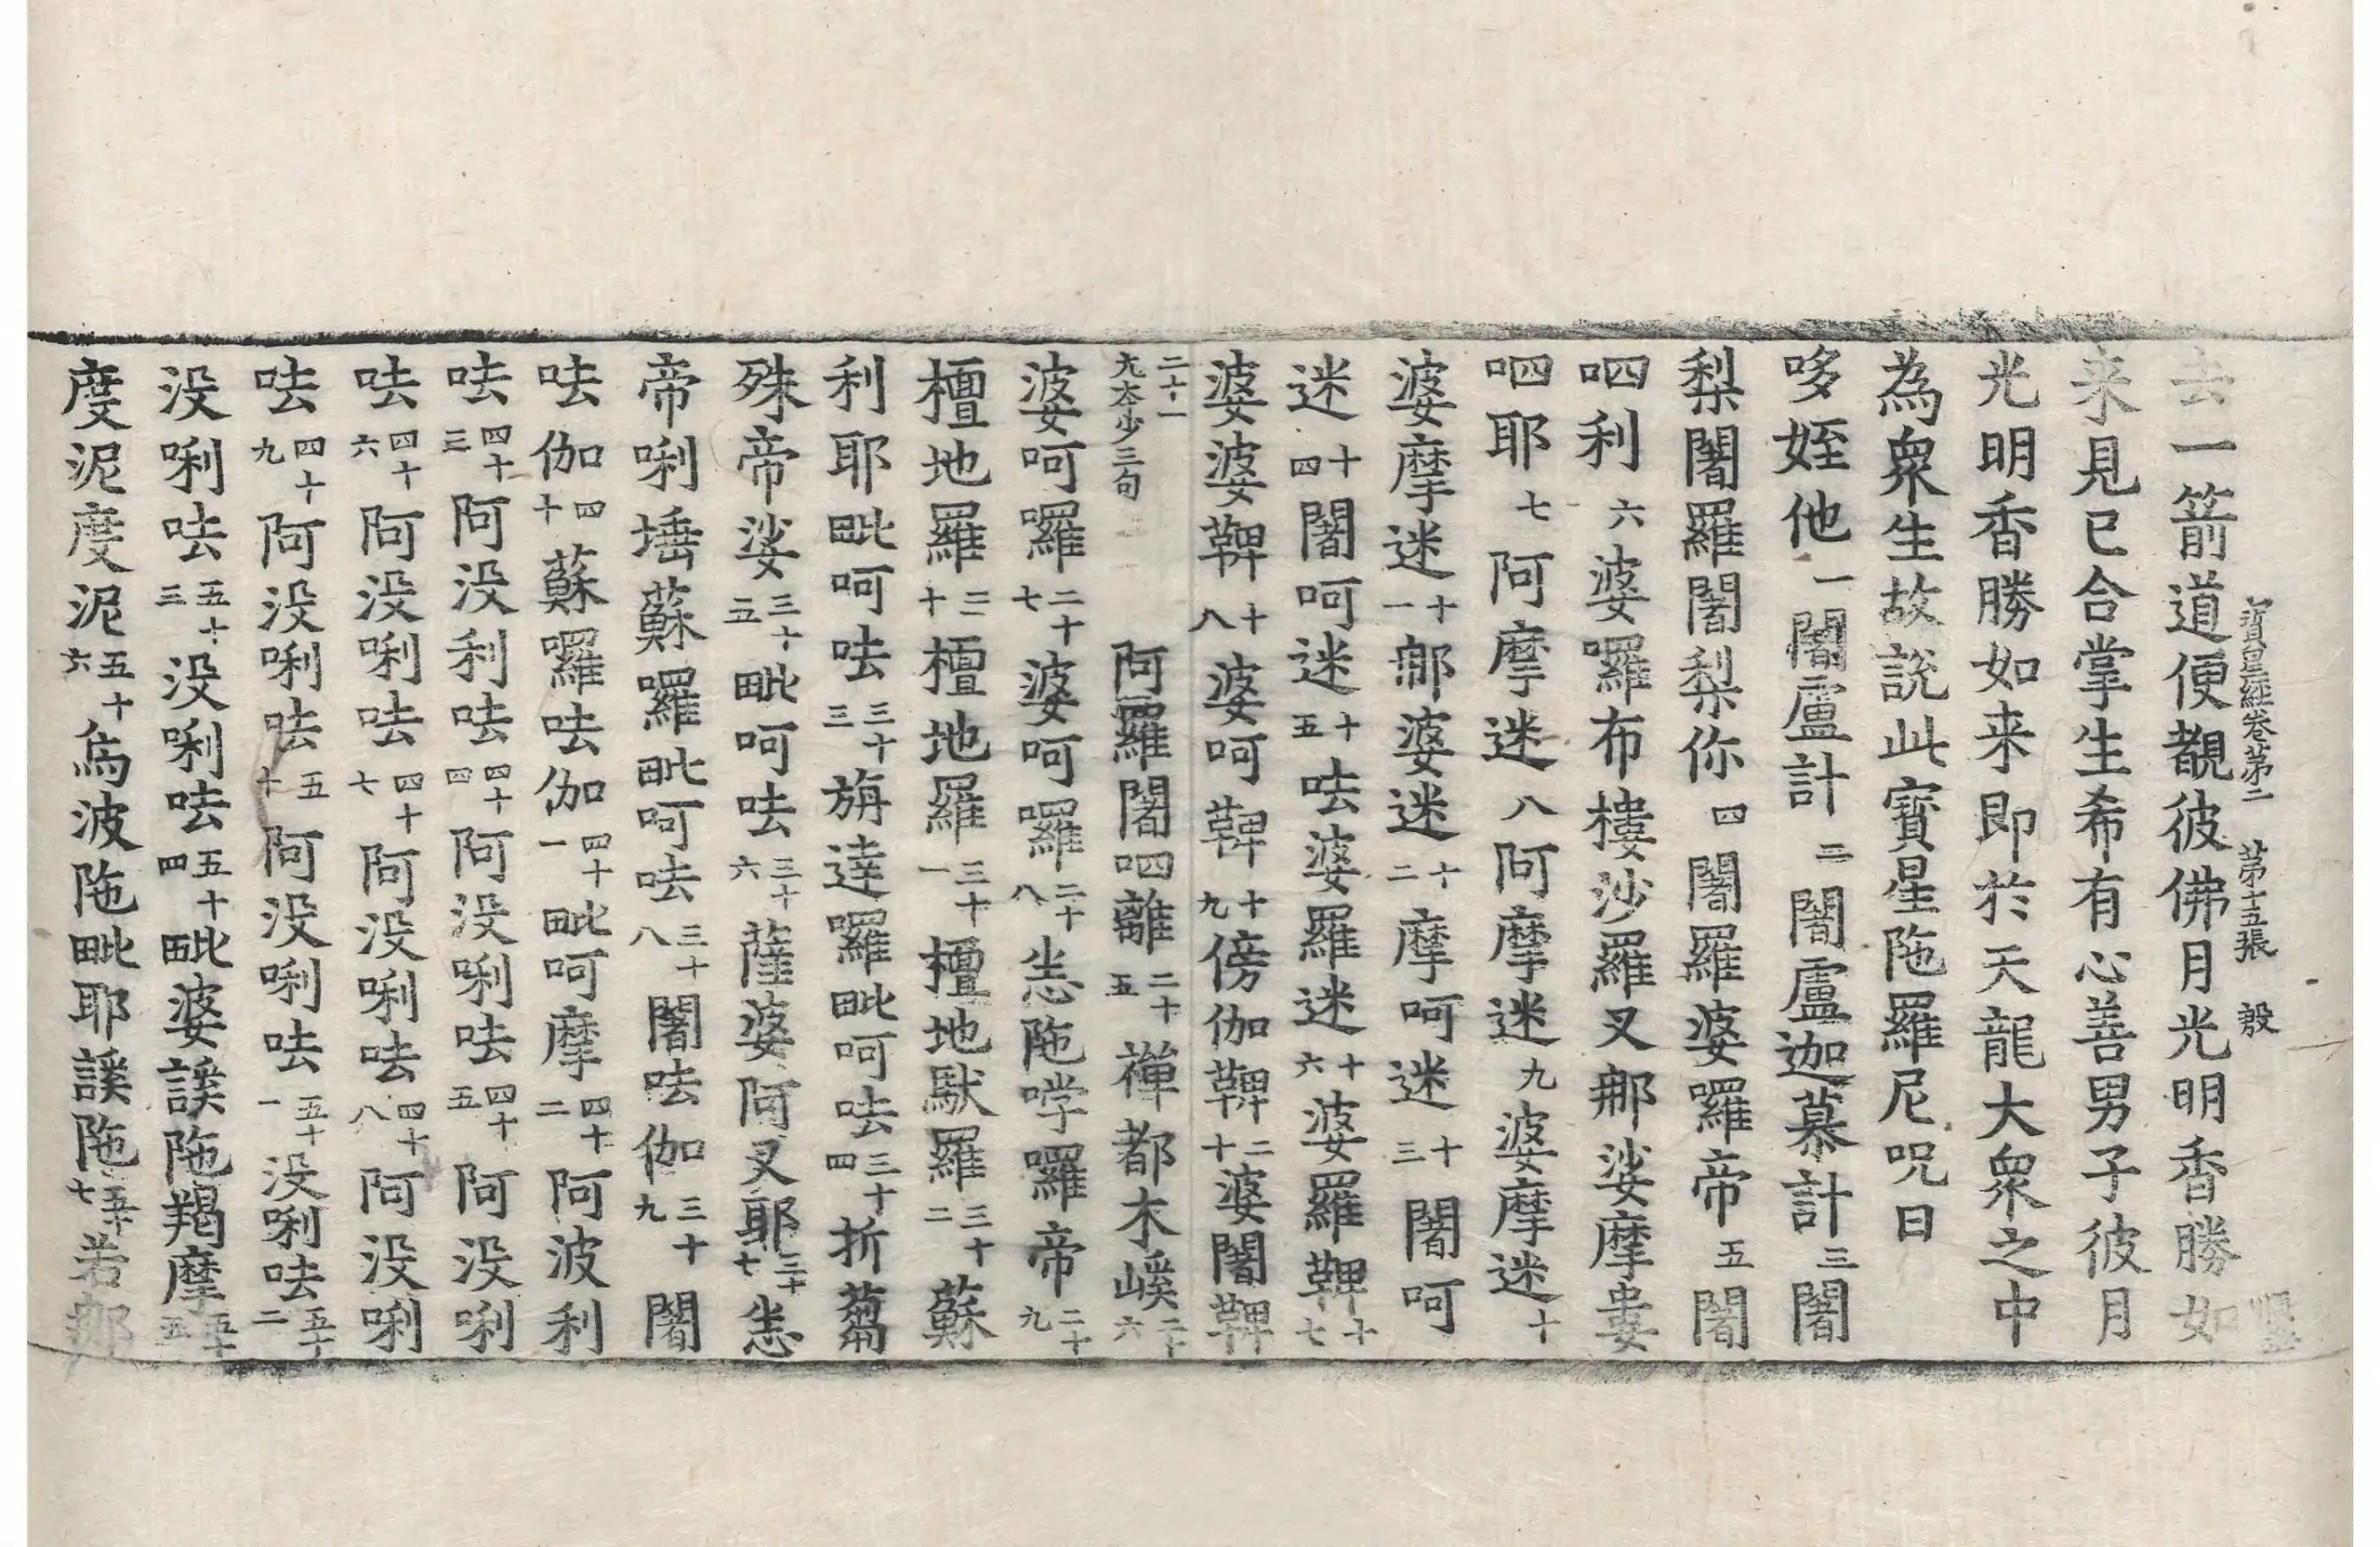 寶星經卷第二　第十五張　殷
去一箭道便覩彼佛月光明香勝如
来見已合掌生希有心善男子彼月
光明香勝如来即於天龍大衆之中
為衆生故說此寶星陁羅尼呪曰
哆姪他一闍盧計二闍盧迦慕計三闍
梨闍羅闍梨你四闍羅婆囉帝五闍
呬利六婆囉布樓沙羅叉那娑摩婁
呬耶七阿摩迷八阿摩迷九婆摩迷十
婆摩迷十一那婆迷十二摩呵迷十三闍呵
迷十四闍呵迷十五呿婆羅迷十六婆羅鞞十七
婆婆鞞十八婆呵鞞十九傍伽鞞二十婆闍鞞
二十一元本少三句阿羅闍呬離二十五禪都木㠌二十六
婆呵囉二十七婆呵囉二十八恙陁喍囉帝二十九
檀地羅三十檀地羅三十一檀地默羅三十二蘇
利耶毗呵呿三十三旃達囉毗呵呿三十四折蒭
殊帝娑三十五毗呵呿三十六薩婆阿叉耶三十七恙
帝唎埵蘇囉毗呵呿三十八闍呿伽三十九闍
呿伽四十蘇囉呿伽四十一毗呵摩四十二阿波利
呿四十三阿没利呿四十四阿没唎呿四十五阿没唎
呿四十六阿没唎呿四十七阿没唎呿四十八阿没唎
呿四十九阿没唎呿五十阿没唎呿五十一没唎呿五十二
没唎呿五十三没唎呿五十四毗婆謑陁羯摩五十五
度泥度泥五十六烏波陁毗耶謑陁五十七若那